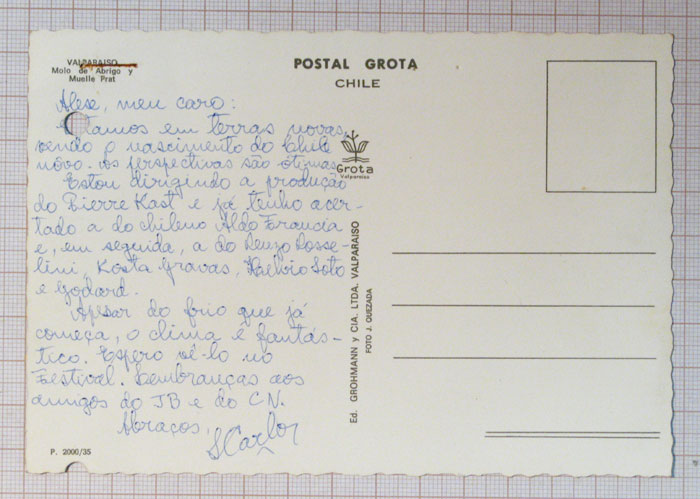 VALPARAISO
Molo de Abrigo y
Muelle Prat
POSTAL GROTA
CHILE
Alese, meu caro:
Estamos em terras novas,
vendo o nascimento do Chile
novo. As perspectivas são ótimas.
Estou dirigindo a produção
do Pierre Kast e já tenho acer-
tado a do chileno Aldo Francia
e, em seguida, a do Renzo Rosse-
lini, Kosta Gravas, Helvio Soto
e Godard.
Apesar do frio que já
começa, o clima é fantás-
tico. Espero vê-lo no
Festival. Lembranças aos
amigos do JB e do CN.
Abraços,
SCarlos
Grota
Valparaiso
Ed. GROHMANN y CIA. LTDA. VALPARAISO
FOTO J. QUEZADA
P. 2000/35